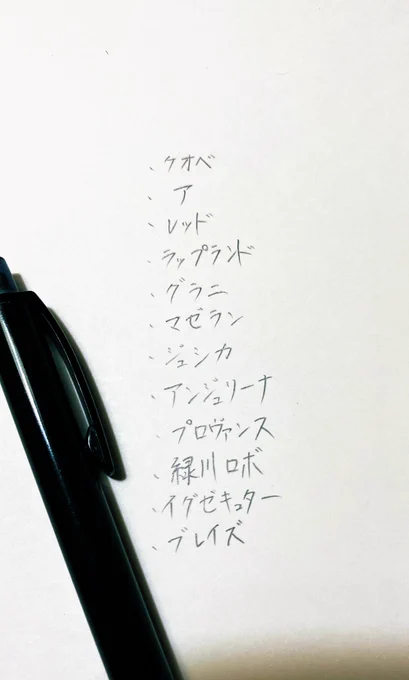 、ケオベ
、ア
、レッド
、ラップランド
、グラニ
、マゼラン
、ジェシカ
、アンジェリーナ
、プロヴァンス
、緑川ロボ
、イグゼキュター
、ブレイズ